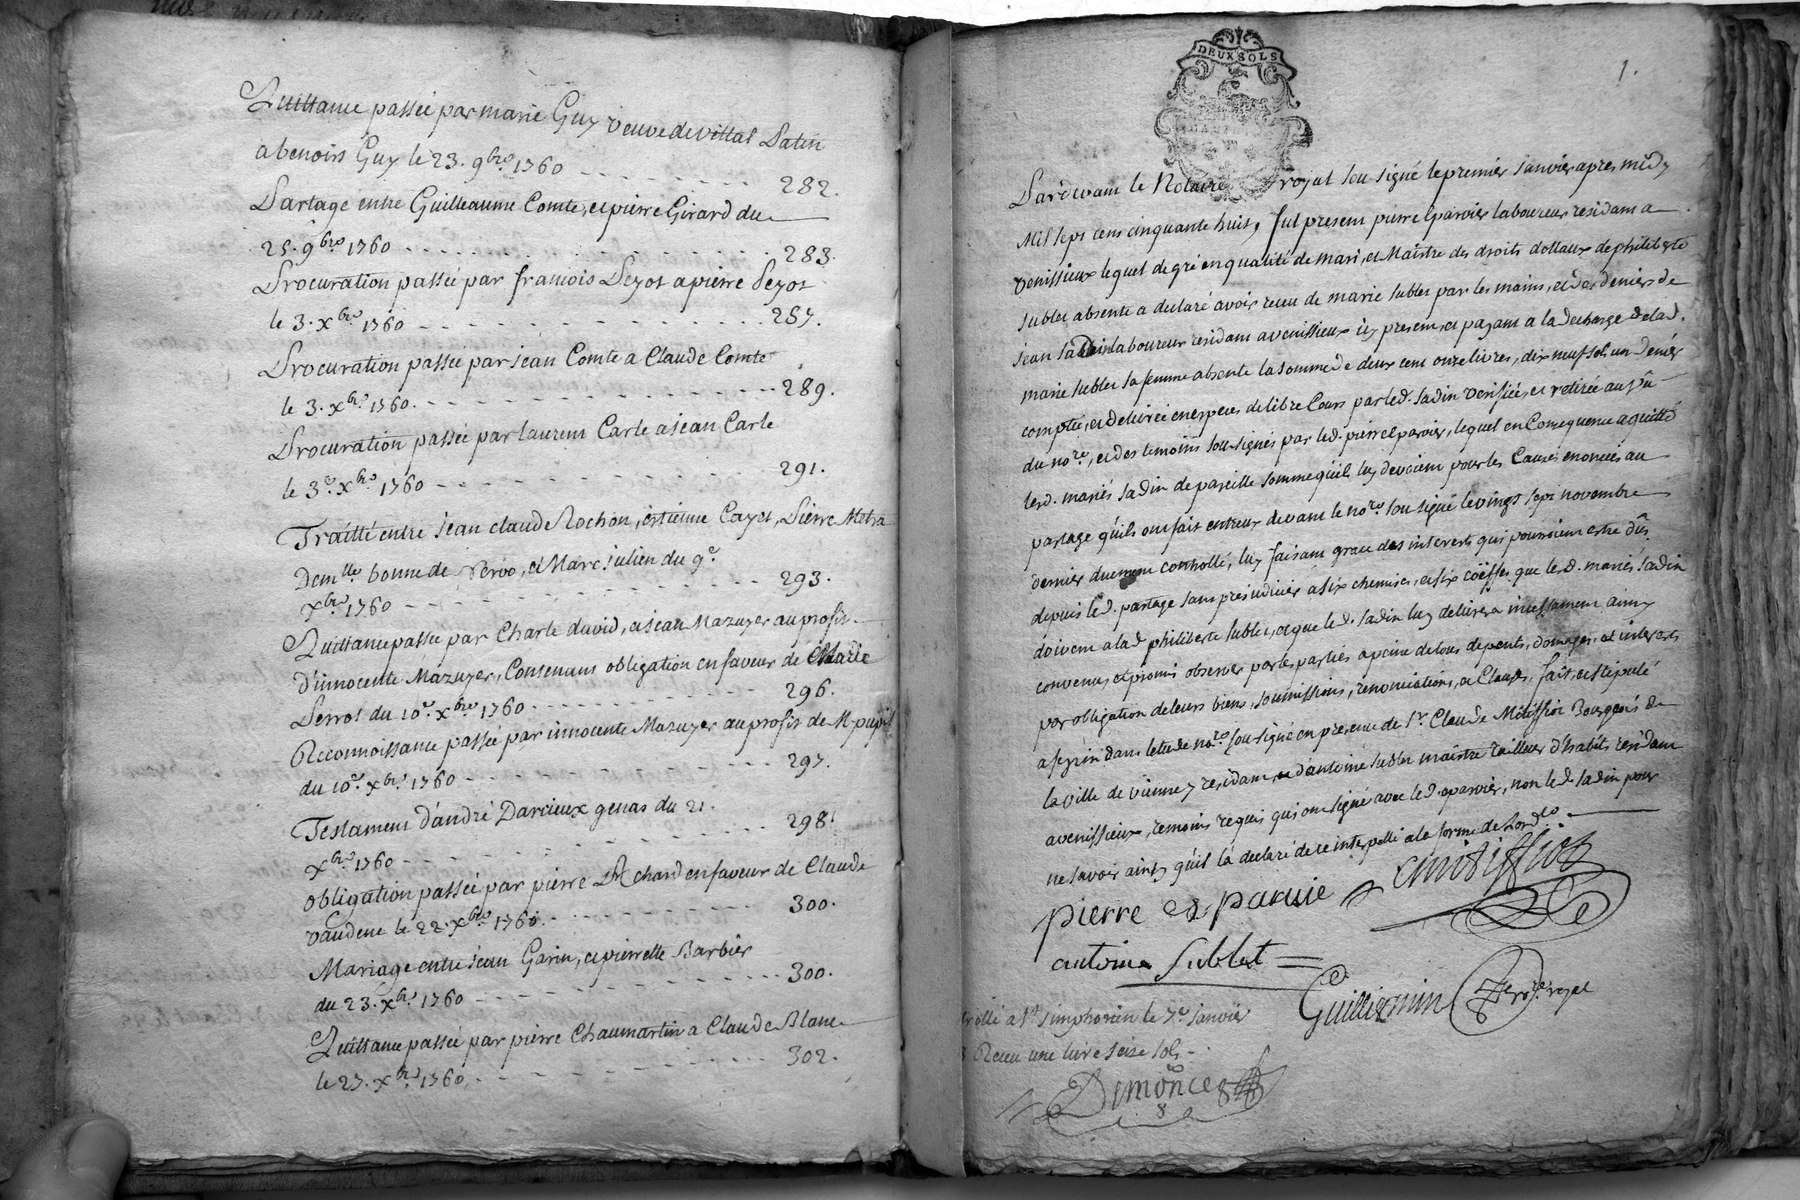 Quittance passée par marie Guy veuve de vittal Patin
a benoist Guy le 23. 9bre 1760 - - - - - - - - 282.
Partage entre Guilleaume Comte, et pierre Girard du
25. 9bre 1760 - - - - 283.
Procuration passée par francois Peyot a pierre Peyot
le 3. xbre 1760 - - - - - - - - 287.
Procuration passée par jean Comte a Claude Comte
le 3. xbre 1760. - - - - - - - - 289.
Procuration passée par laurent Carle a jean Carle
le 3e. xbre 1760 - - - - - - - - 291.
Traitté entre jean claude Rochon, estienne Cayet, Pierre Metra
Demlle bonne de Servo, et Marc julien du 9e
xbre 1760 - - - - - - - - 293.
Quittance passée par Charle david, et jean Mazuyer au profit
d'innocente Mazuyer, Contenant obligation en faveur de
Perrot du 10e xbre 1760 - - - - - - - - 296.
Reconnoissance passée par innocente Mazuyer au profit de M. pupil
du 10e. xbre 1760 - - - - - - - - 297.
Testament d'andré Darcieux genas du 21.
xbre 1760 - - - - - - - - 298.
obligation passée par pierre Richard en faveur de Claude
Vaudene le 22. xbre 1760. - - - - - - - - 300.
Mariage entre jean Garin, et pierrette Barbier
du 23. xbre 1760 - - - - - - - - 300.
Quittance passée par pierre Chaumartin a Claude Blanc
le 27. xbre 1760. - - - - - - - - 302.
DEUX SOLS
1.
Pardevant le Notaire royal sou signé le premier janvier apres midy
Mil sept cens cinquante huit, fut present pierre Eparvier laboureur residant a
Venissieux lequel de gré en qualité de mari, et Maitre des droits dottaux de philiberte
Sublet absente a declaré avoir receu de marie Sublet par les mains, et des deniers de
jean Sadin laboureur residant a venissieux icy present, et payant a la decharge de lad.
marie Sublet sa femme absente la somme de deux cent onze livres, dix neuf sols un denier
comptée, et delivrée en especes de libre Cours par led. Sadin verifiée, et retirée au vû
du nore, et des temoins sousignés par led. pierre Eparvier, lequel en Consequence a quitté
lesd. mariés Sadin de pareille somme qu'ils luy devoient pour les Causes enoncées au
partage qu'ils ont fait entreux devant le nore sou signé le vingt sept novembre
dernier duement controllé, luy faisant grace des interets qui pourroient estre dûs
depuis led. partage sans prejudicier a six chemises, et six coëffes que lesd. mariés Sadin
doivent a lad. philiberte Sublet, et que led. Sadin luy delivrera incessament ainsy
convenu, et promis observer par les parties a peine de tous depents, domages, et interets
par obligation de leurs biens, soumissions, renonciations, et Clauses, fait, et stipulé
a feyzin dans letude nore sou signé en presence de Sr. Claude Mitiffiot Bourgeois de
la ville de vienne y residant, et d'antoine Sublet maitre tailleur d'habits residant
a venissieux, temoins requis qui ont signé avec led. eparvier, non led. Sadin pour
ne savoir ainsy qu'il l'a declaré de ce interpellé a la forme de Lordce.
pierre es paruie
C mitiffiot
antoine Sublet
Guillermin nore royal
trollé a St. simphorien le 7e janvier
Receu une livre seize sols
Demonceau